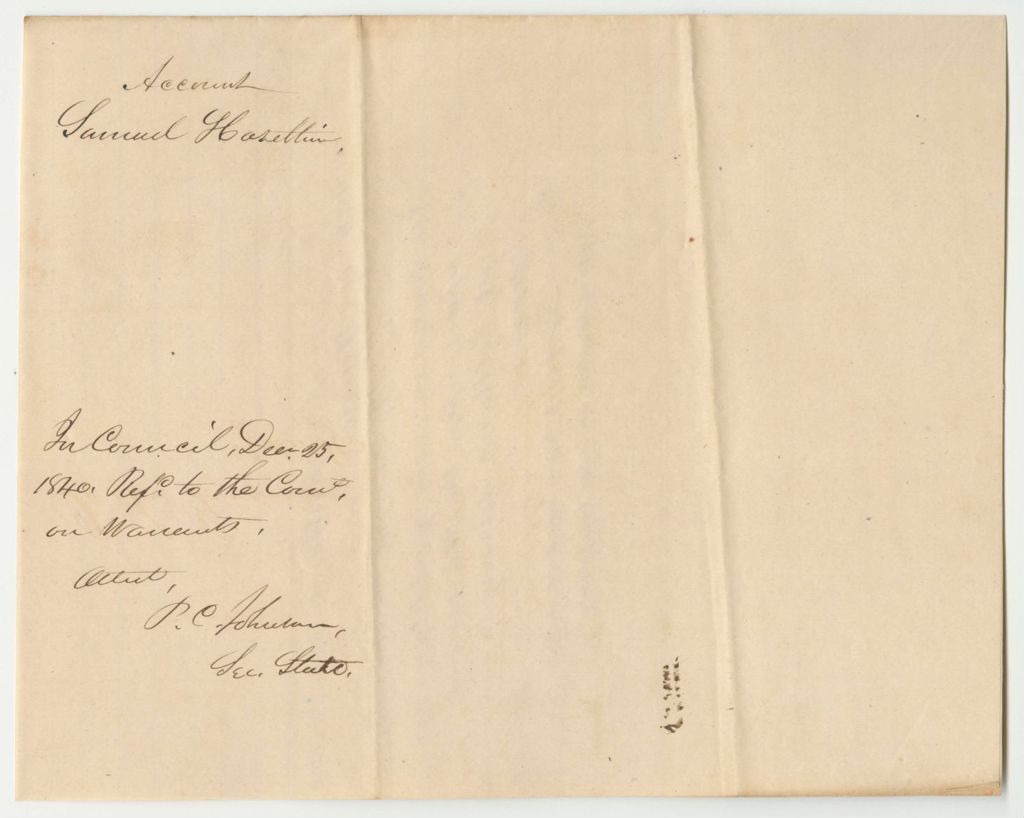 Account
Samuel Hazeltine,
In Council, Dec. 25,
1840. Refd. to the Come.
on Warrants.
Attest,
P. C. Johnson,
Sec. State.